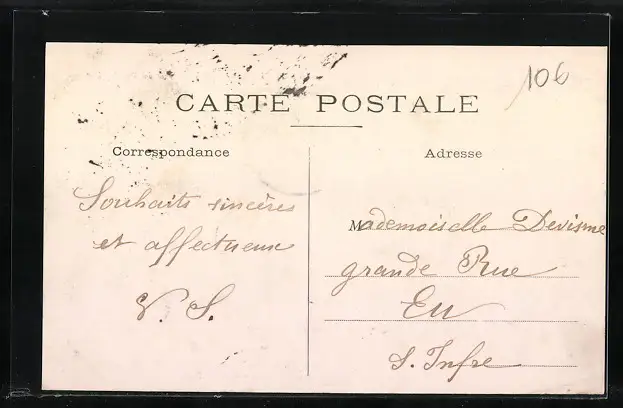 106
CARTE POSTALE
Correspondance
Souhaits sincères
et affectueux
V. S.
Adresse
Mademoiselle Devisme
grande Rue
Eu
S. Infre